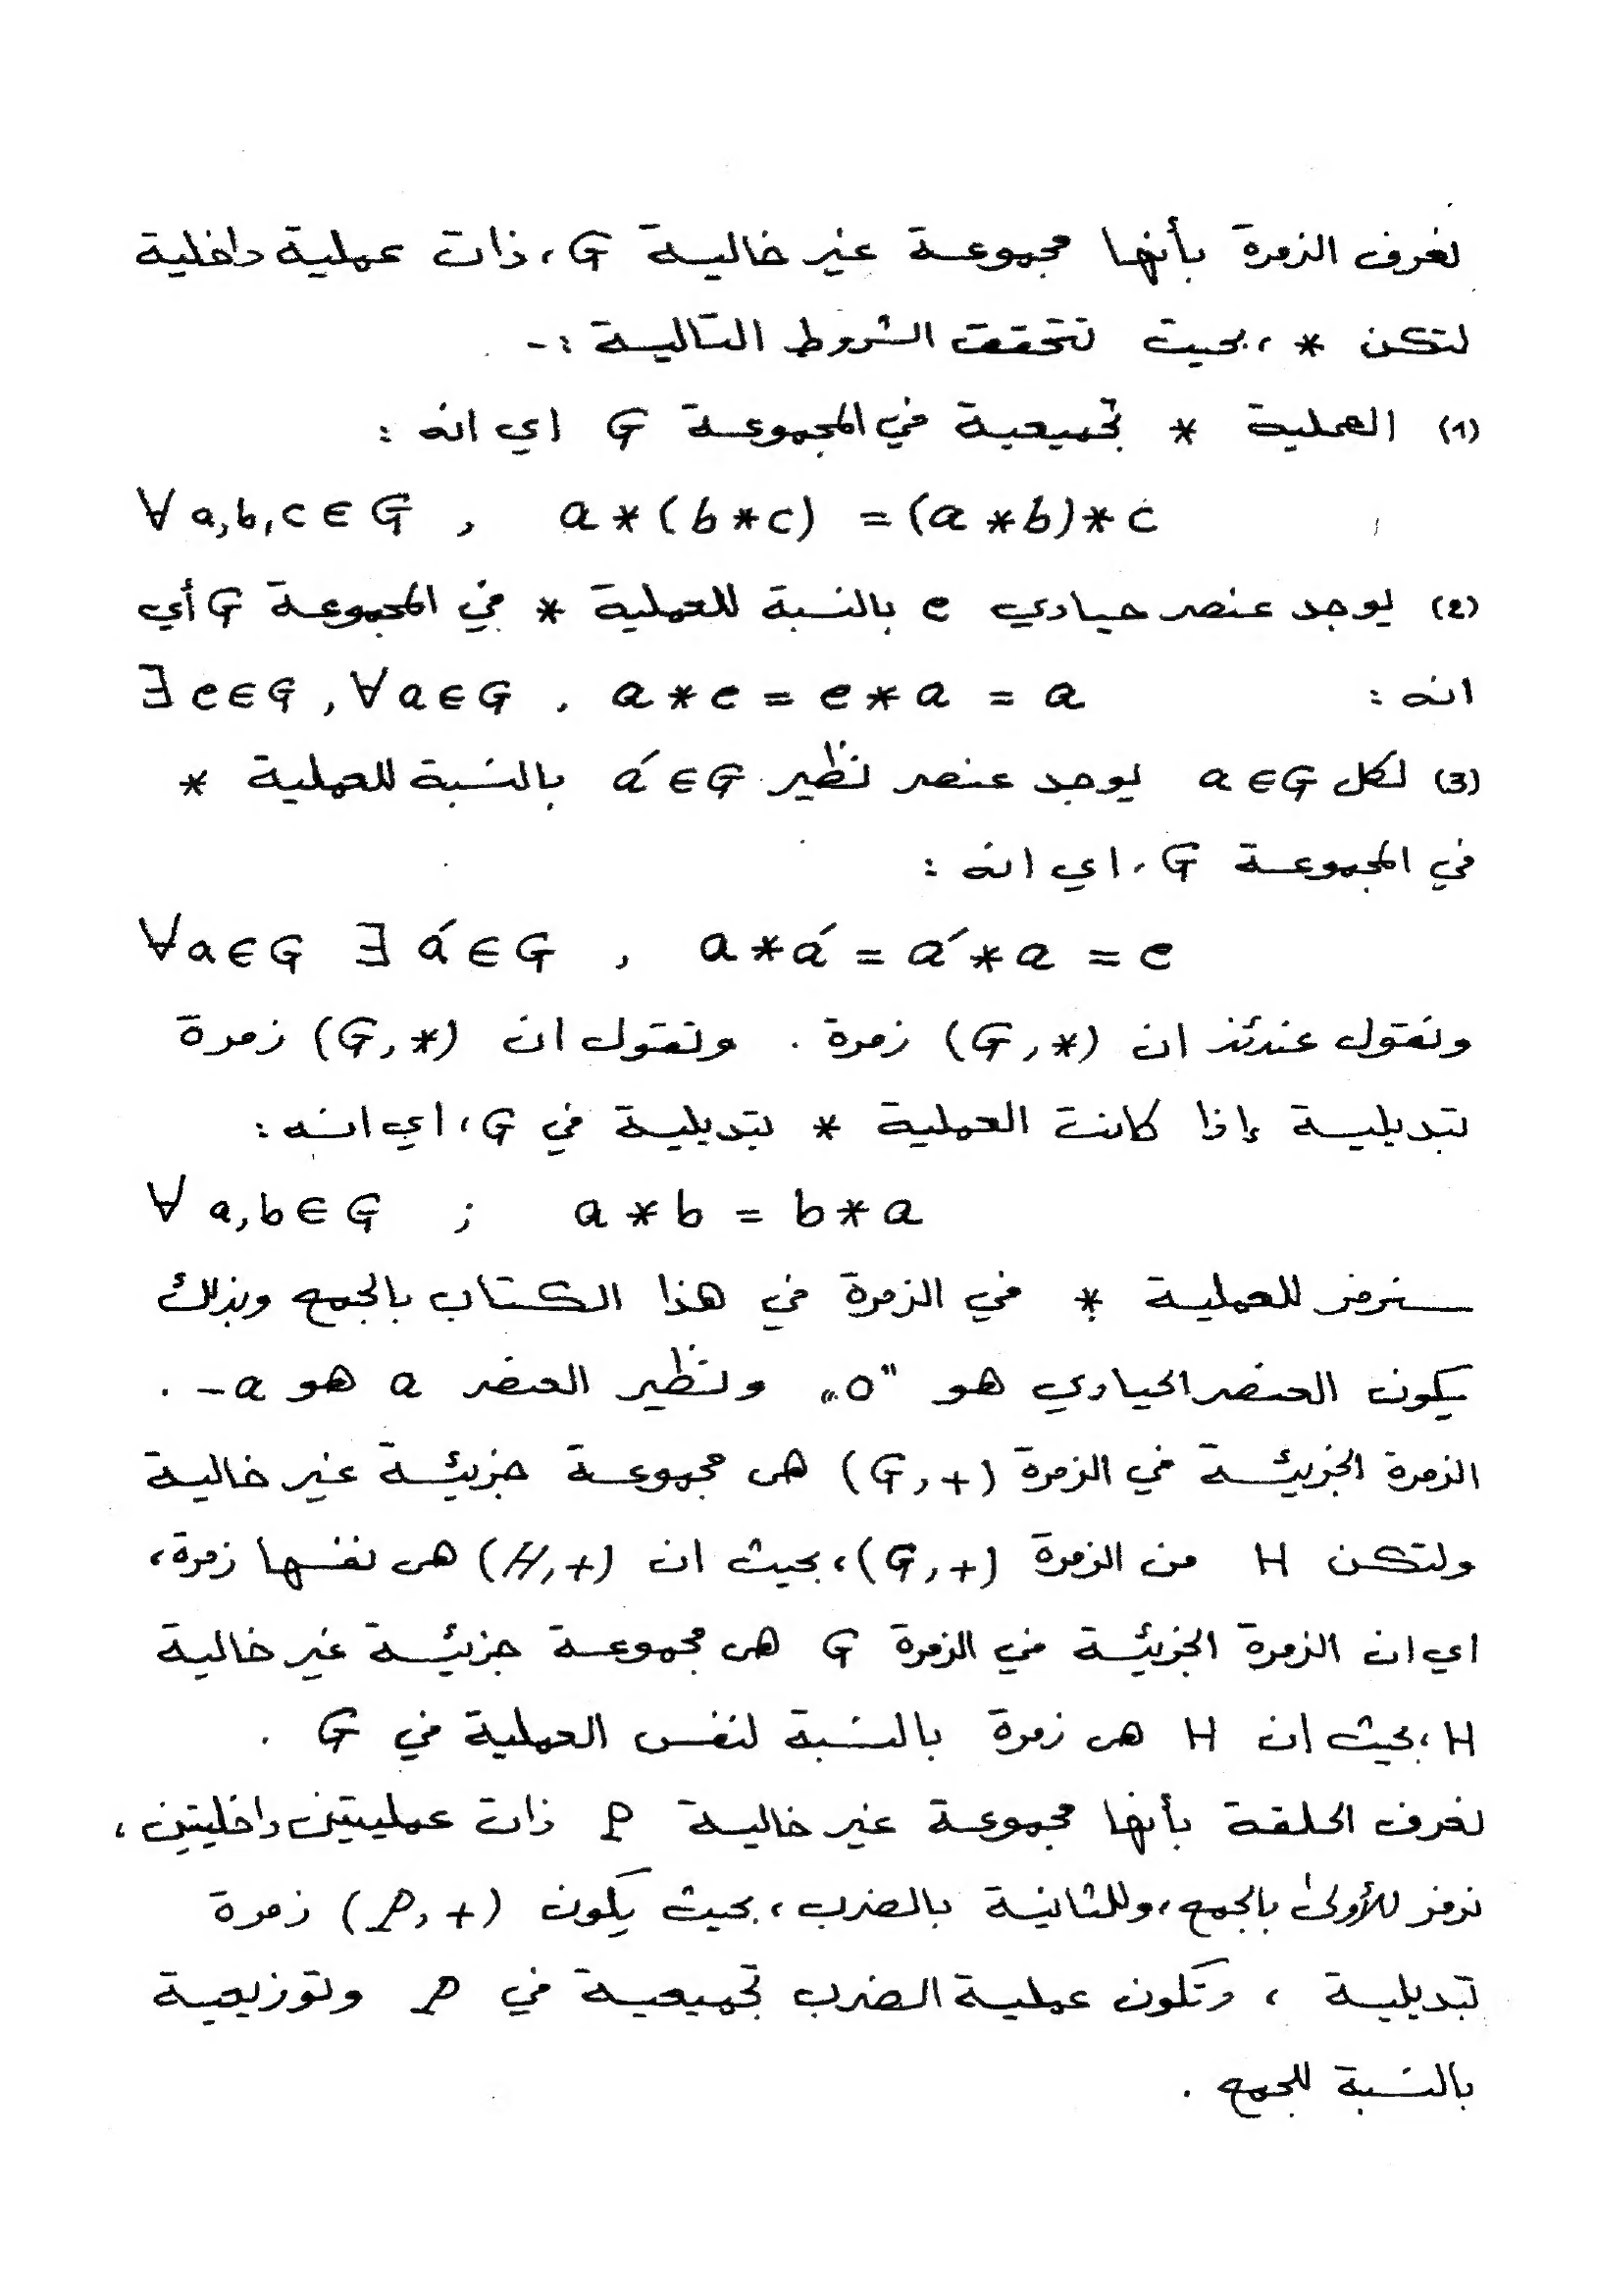 نعرف الزمرة بأنها مجموعة غير خالية G، ذات عملية داخلية
لتكن *، بحيث تتحقق الشروط التالية :-
(1) العملية * تجميعية في المجموعة G اي انه :
∀ a,b,c ∈ G , a*(b*c) = (a*b)*c
(2) يوجد عنصر حيادي e بالنسبة للعملية * في المجموعة G أي
انه : ∃ e∈G , ∀a∈G , a*e = e*a = a
(3) لكل a∈G يوجد عنصر نظير á∈G بالنسبة للعملية *
في المجموعة G، اي انه :
∀a∈G ∃ á∈G , a*á = á*a = e
ونقول عندئذ ان (G,*) زمرة . ونقول ان (G,*) زمرة
تبديلية إذا كانت العملية * تبديلية في G، اي انه :
∀ a,b∈G ; a*b = b*a
سنرمز للعملية * في الزمرة في هذا الكتاب بالجمع وبذلك
يكون العنصر الحيادي هو "0" ونظير العنصر a هو -a .
الزمرة الجزيئة في الزمرة (G,+) هي مجموعة جزيئة غير خالية
ولتكن H من الزمرة (G,+)، بحيث ان (H,+) هي نفسها زمرة،
اي ان الزمرة الجزيئة في الزمرة G هي مجموعة جزئية غير خالية
H، بحيث ان H هي زمرة بالنسبة لنفس العملية في G .
نعرف الحلقة بأنها مجموعة غير خالية P ذات عمليتين داخليتين،
نرمز للأولى بالجمع، وللثانية بالضرب، بحيث يكون (P,+) زمرة
تبديلية ، وتكون عملية الضرب تجميعية في P وتوزيعية
بالنسبة للجمع .